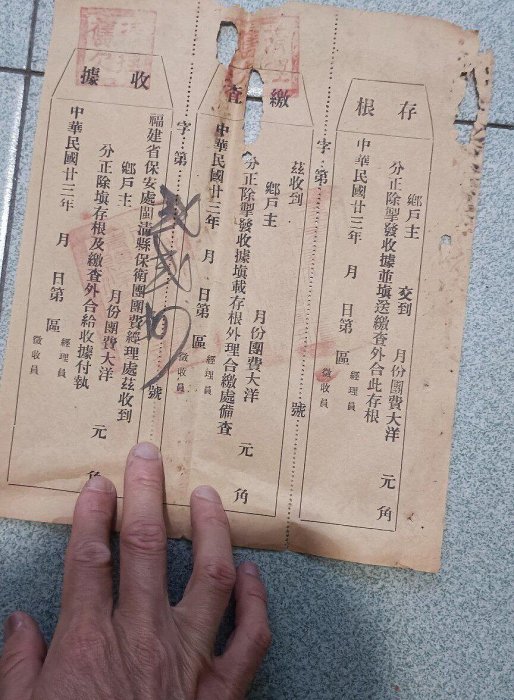 存根
鄉戶主 交到 月份團費大洋 元 角
分正除掣發收據並填送繳查外合此存根
中華民國廿三年 月 日第 區 經理員 徵收員
字第 號
繳查
茲收到
鄉戶主 月份團費大洋 元 角
分正除掣發收據填載存根外理合繳處備查
中華民國廿三年 月 日第 區 經理員 徵收員
字第 號
收據
福建省保安處閩清縣保衛團團費經理處茲收到
鄉戶主 月份團費大洋 元 角
分正除填存根及繳查外合給收據付執
中華民國廿三年 月 日第 區 經理員 徵收員